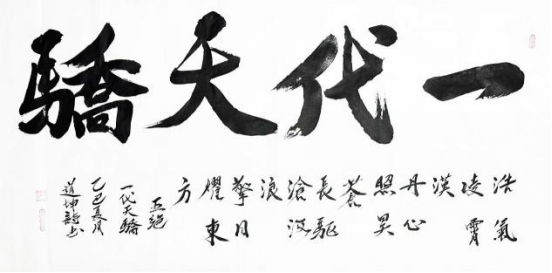 一代天驕
浩氣
凌霄
漢
丹心
照昊
蒼
長驅
滄波
浪
擎日
燿東
方
五絕
一代天驕
乙巳夏月
道坤